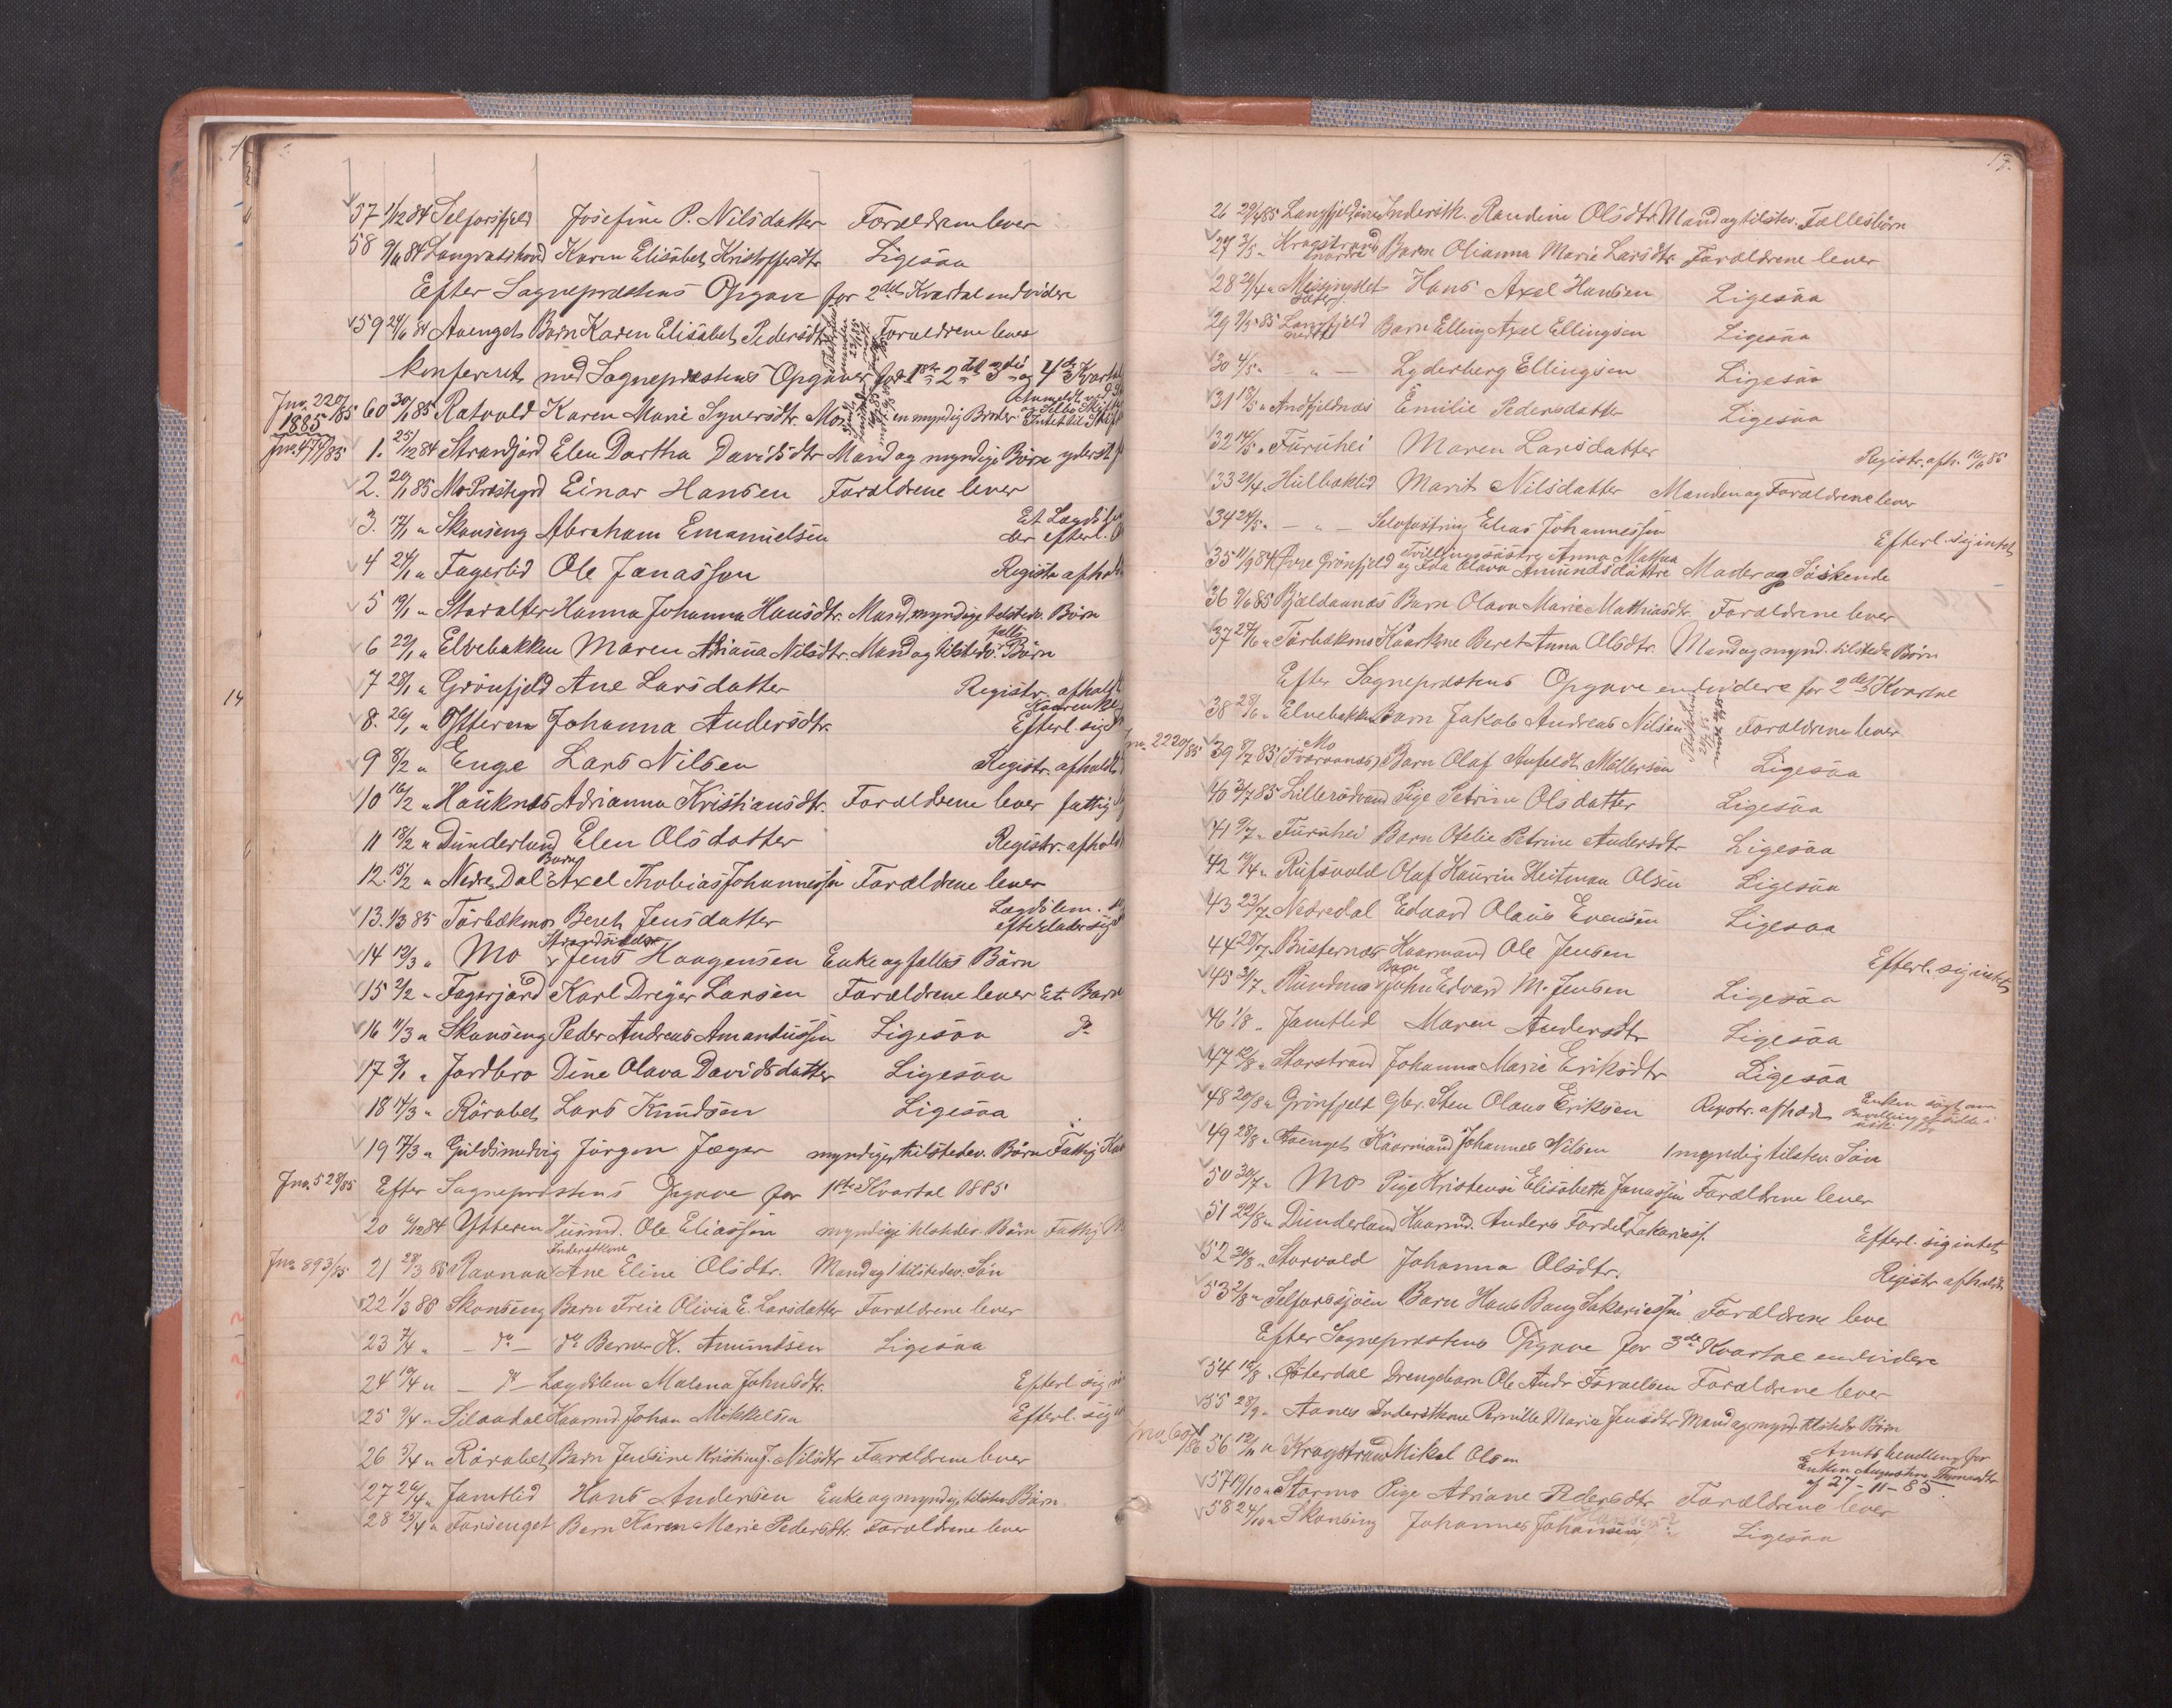 57 1/12 84 Selforsfjeld Josefine P. Nilsdatter Forældrene lever
58 9/11 84 Langvatshoved Karen Elisabet Kristoffersdtr Ligesaa
Efter Sognepræstens Opgave for 2det Kvartal endvidere
59 24/6 84 Avenget Barn Karen Elisabet Pedersdtr Forældrene lever
konfereret med Sognepræstens Opgaver for 1ste 2det 3die og 4de Kvartal
Jno. 220/85 60 30/1 85 Ratvold Karen Marie Synersdtr. en myndig Broder. Intet til
1885
Jno. 474/85 1. 25/12 84 Strandjord Elen Dorthea Davidsdtr Mand og myndige Börn yderst
2. 20/1 85 Mo Præstegrd Einar Hansen Forældrene lever
3. 17/1 " Skonseng Abraham Emanuelsen Et Lægdslem der efterl.
4 24/1 " Fagerlid Ole Jonassen Registr afholdt
5 19/1 " Storalter Hanna Johanna Hansdtr. Mand, myndige tilstedev. Börn
6 22/1 " Elvebakken Maren Adriana Nilsdtr. Mand og tilstedv. fælles Börn
7 28/1 " Grönfjeld Ane Larsdatter Registr. afholdt
8. 26/1 " Ytteren Johanna Andersdtr. Kaarenke Efterl. sig
9 8/2 " Enge Lars Nilsen Registr. afholdt
10 16/2 " Hauknes Adrianna Kristiansdtr. Forældrene lever fattig
11 18/2 " Dunderland Elen Olsdatter Registr. afholdt
12. 15/2 " Nedre Dal Barn Axel Thobias Johannessen Forældrene lever
13. 1/3 85 Törbækmo Beret Jensdatter Lægdslem. efterlader sig
14 12/3 " Mo Strandsidder Jens Haagensen Enke og fælles Börn
15 2/2 " Fagerjord Karl Dreyer Larsen Forældrene lever Et Barn
16 11/3 " Skonseng Peder Andreas Amandussen Ligesaa do
17 3/1 " Jordbro Dine Olava Davidsdatter Ligesaa
18 14/3 " Rörabet Lars Knudsen Ligesaa
19 17/3 " Guldsmedvig Jörgen Jæger myndige tilstedev. Börn Fattig
Jno. 528/85 Efter Sognepræstens Opgave for 1ste Kvartal 1885
20 9/12 84 Ytteren Husmd. Ole Eliassen myndige tilstedev. Börn Fattig
Jno. 893/85 21 28/3 85 Ravnaa Inderstkone Ane Eline Olsdtr. Mand og 1 tilstedev. Sön
22 1/3 85 Skonseng Barn Freie Olivia E. Larsdatter Forældrene lever
23 7/4 " — do — do Berner K. Amundsen Ligesaa
24 19/4 " — do — Lægdslem Malena Johnsdtr. Efterl. sig
25 9/4 " Silaadal Kaarmd. Johan Mikkelsen Efterl. sig
26 5/4 " Rörabet Barn Jensine Kristine J. Nilsdtr Forældrene lever
27 26/4 " Jamtlid Hans Andersen Enke og myndige tilstedev Börn
28 25/4 " Forsenget Barn Karen Marie Pedersdtr. Forældrene lever
14
17.
26 29/4 85 Langfjeld övre Inderstk. Randine Olsdtr. Mand og tilstev. Fællesbörn
27 3/5 " Kragstrand nordre Barn Olianna Marie Larsdtr. Forældrene lever
28 24/4 " Messingslet Hans Axel Hansen Ligesaa
29 9/5 85 Langfjeld nedre Barn Elling Axel Ellingsen Ligesaa
30 4/5 " — " — Lyderberg Ellingsen Ligesaa
31 13/5 " Andfjeldnes Emilie Pedersdatter Ligesaa
32 14/5 " Furuhei Maren Larsdatter Registr. afh. 10/6 85
33 21/4 " Hulbæklid Marit Nilsdatter Manden og Forældrene lever
34 24/5 " — " — Selvfostring Elias Johannessen Efterl. sig intet
35 11/9 84 Övre Grönfjeld Tvillingesöstre Anna Mathea og Ida Olava Amundsdöttre Moder og Söskende
36 9/6 85 Pjældaanæs Barn Olava Marie Mathiasdtr. Forældrene lever
37 27/6 " Törbækmo Kaarkone Beret Anna Olsdtr. Mand og mynd. tilstede Börn
Efter Sognepræstens Opgave endvidere for 2det Kvartal
38 28/6 " Elvebakken Barn Jakob Andreas Nilsen Forældrene lever
Jno. 2220/85 39 8/7 85 Mo (Tvervaanes) Barn Olaf Anfeldt Möllersen Ligesaa
40 3/7 85 Lillerödvand Pige Petrine Olsdatter Ligesaa
41 9/7 " Furuhei Barn Ofelie Petrine Andersdtr Ligesaa
42 19/4 " Rufsvold Olaf Haurin Heitman Olsen Ligesaa
43 23/7 " Nedredal Edvard Olaus Evensen Ligesaa
44 25/7 " Busternes Kaarmand Ole Jensen Efterl. sig intet
45 3/7 " Rundmo Barn John Edvard M. Jensen Ligesaa
46 1/8 " Jamtlid Maren Andersdtr Ligesaa
47 12/8 " Storstrand Johanna Marie Eriksdtr Ligesaa
48 20/8 " Grönfjeld Gbr. Sten Olaus Eriksen Registr. afholdt Enken sögt om Bevilling
49 28/8 " Avenget Kaarmand Johannes Nilsen 1 myndig tilstev. Sön
50 30/7 " Mo Pige Kristensi Elisabeth Jonassen Forældrene lever
51 22/8 " Dunderland Kaarmd. Anders Fordel Zakariass. Efterl. sig intet
52 30/8 " Storvold Johanna Olsdtr. Registr afholdt
53 2/8 " Selforssjöen Barn Hans Baug Sakariassen Forældrene leve
Efter Sognepræstens Opgave for 3de Kvartal endvidere
54 18/8 " Österdal Drengebarn Ole Andr Israelsen Forældrene lever
55 28/9 " Aanes Inderstkone Pernille Maria Jensdtr Mand og mynd. tilstedv. Börn
56 12/11 " Kragstrand Mikal Olsen Amts bevilling for Enken Augustine Thomasdtr af 27-11-85
57 19/10 " Stormo Pige Adriane Pedersdtr Forældrene lever
58 24/10 " Skonseng Johannes Johansen Hansen? Ligesaa